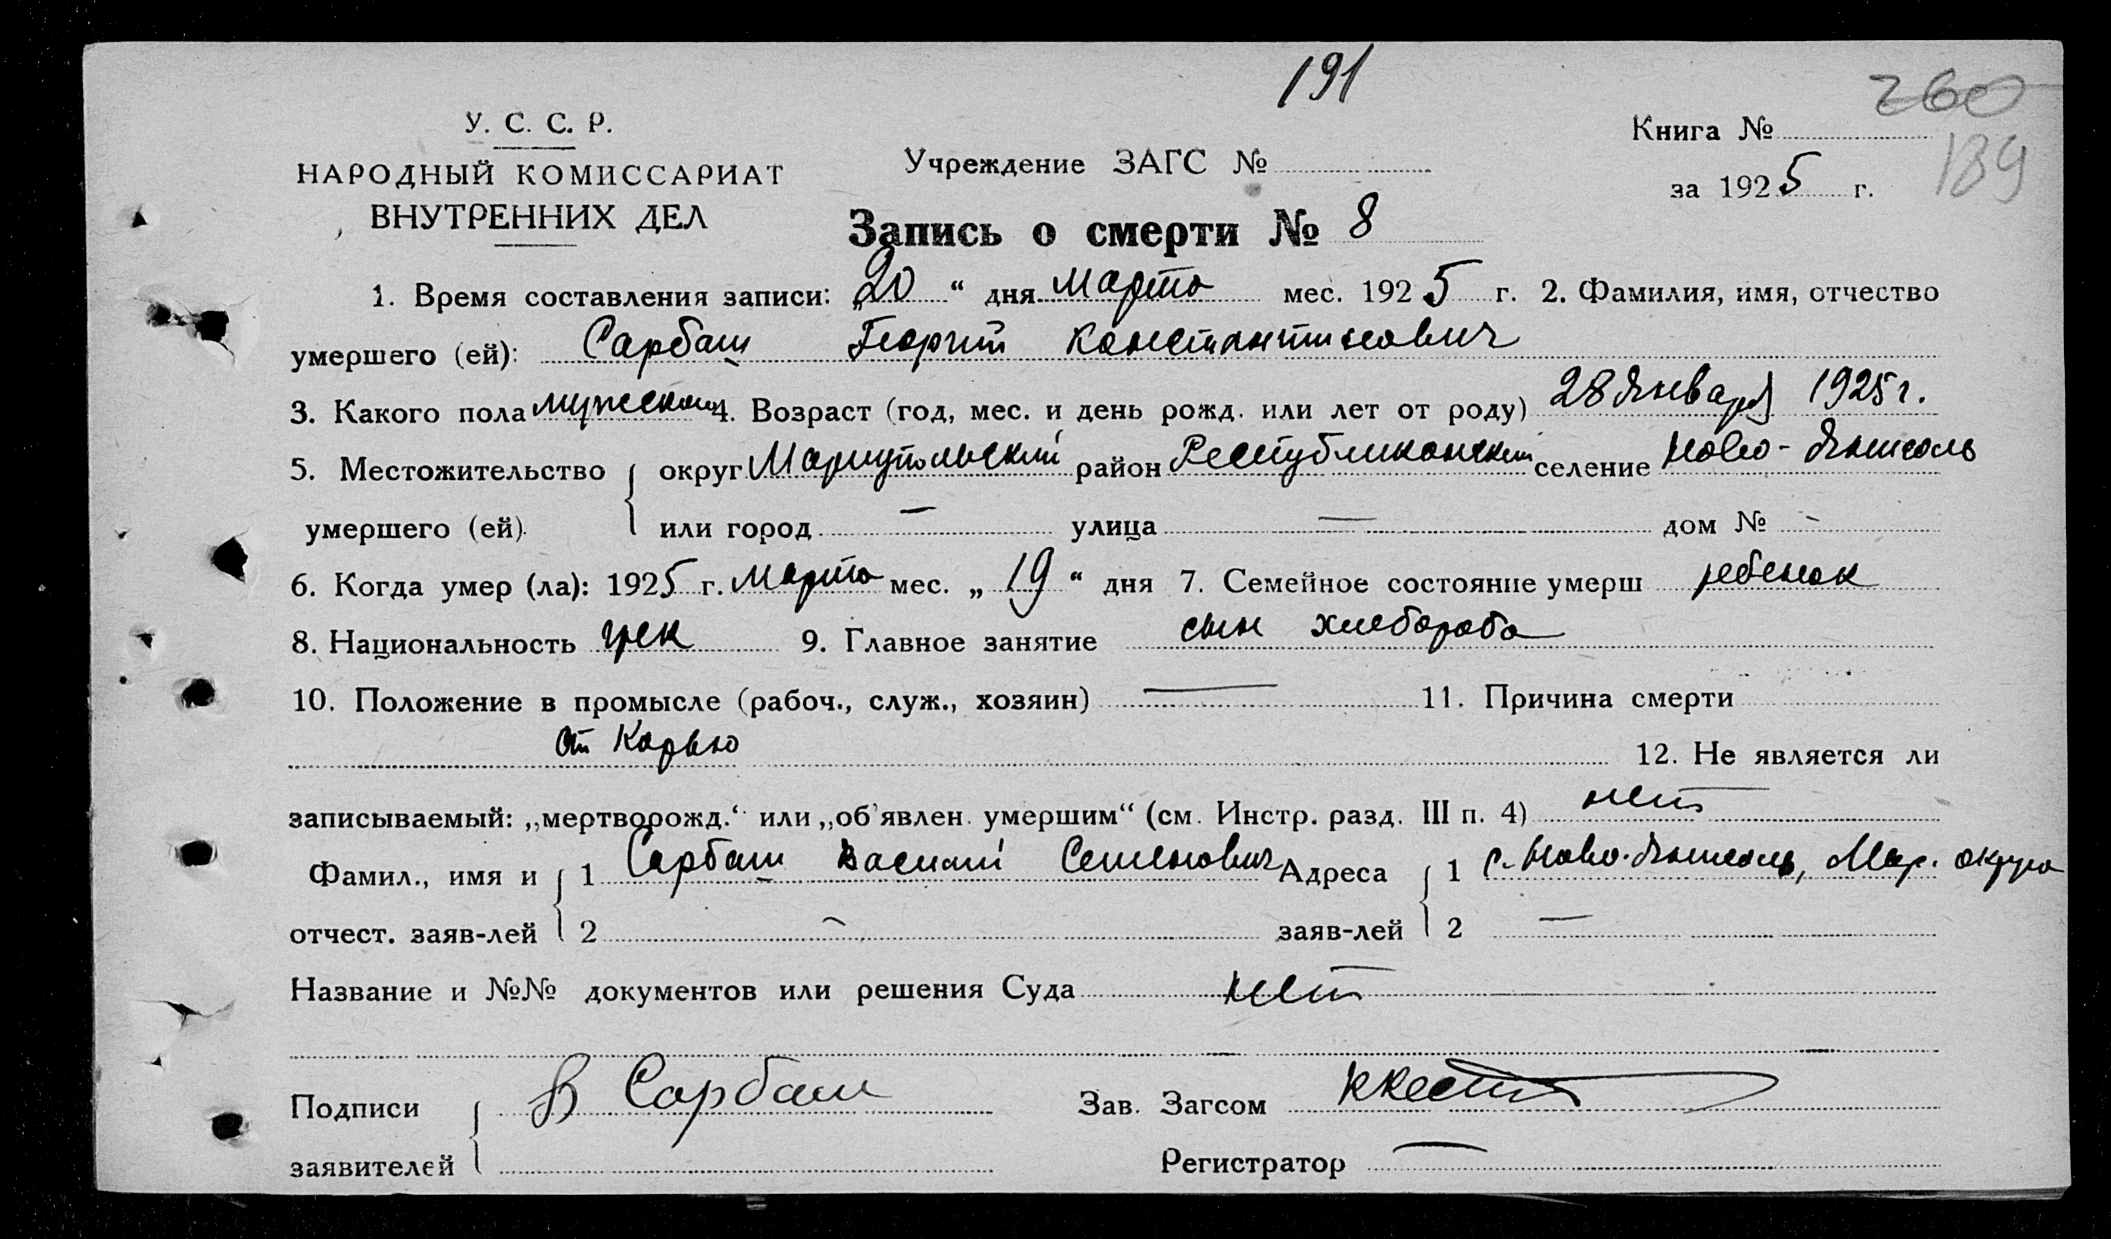 191
260
У. С. С. Р.
Книга №
НАРОДНЫЙ КОМИССАРИАТ
Учреждение ЗАГС №
189
ВНУТРЕННИХ ДЕЛ
за 1925 г.
Запись о смерти № 8
1. Время составления записи: „20“ дня Марта мес. 1925 г. 2. Фамилия, имя, отчество
умершего (ей): Сарбаш Георгий Константинович
3. Какого пола мужеского 4. Возраст (год, мес. и день рожд. или лет от роду) 28 Января 1925 г.
5. Местожительство округ Мариупольский район Республиканский селение Ново-Янисоль
умершего (ей). или город — улица — дом № -
6. Когда умер (ла): 1925 г. Марта мес. „19“ дня 7. Семейное состояние умерш ребенок
8. Национальность грек 9. Главное занятие сын хлебороба
10. Положение в промысле (рабоч., служ., хозяин) — 11. Причина смерти
От Корью
12. Не является ли
записываемый: „мертворожд.“ или „об'явлен. умершим“ (см. Инстр. разд. III п. 4) нет
Фамил., имя и 1 Сарбаш Василий Семенович Адреса 1 с. Ново-Янисоль, Мар. округа
отчест. заяв-лей 2 — заяв-лей 2 —
Название и №№ документов или решения Суда нет
Подписи В Сарбаш Зав. Загсом
заявителей Регистратор —